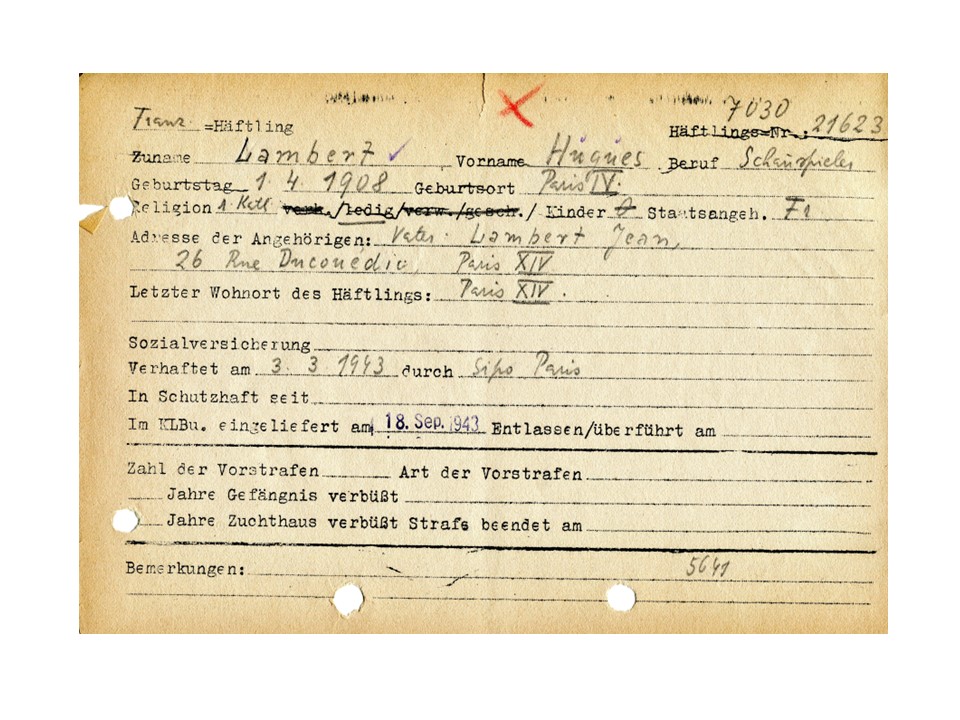 7030
Franz. =Häftling Häftlings=Nr.: 21623
Zuname Lambert Vorname Hugues Beruf Schauspieler
Geburtstag 1.4.1908 Geburtsort Paris IV.
Religion r. Kath verh./ledig/verw./gesch./ Kinder 0 Staatsangeh. Fr
Adresse der Angehörigen: Vater: Lambert Jean,
26 Rue Ducouédic, Paris XIV
Letzter Wohnort des Häftlings: Paris XIV.
Sozialversicherung
Verhaftet am 3.3 1943 durch Sipo Paris
In Schutzhaft seit
Im KLBu. eingeliefert am 18. Sep. 1943 Entlassen/überführt am
Zahl der Vorstrafen Art der Vorstrafen
Jahre Gefängnis verbüßt
Jahre Zuchthaus verbüßt Strafe beendet am
Bemerkungen: 5641